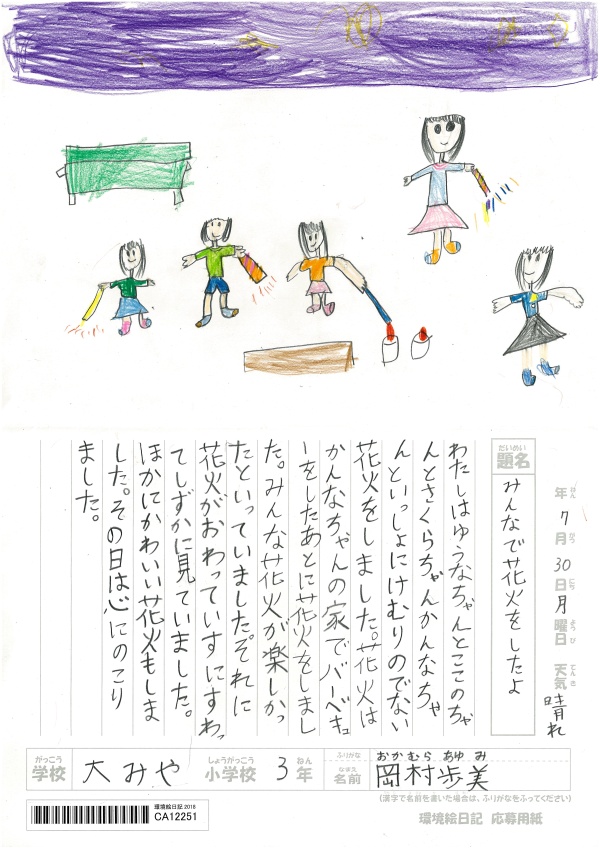 年 7月30日月曜日 天気 晴れ
ねん がつ にち ようび てんき
だいめい
題名 みんなで花火をしたよ
わたしはゆうなちゃんとここのちゃ
んとさくらちゃんかんなちゃ
んといっしょにけむりのでない
花火をしました。花火は
かんなちゃんの家でバーベキュ
ーをしたあとに花火をしまし
た。みんな花火が楽しかっ
たといっていました。それに
花火がおわっていすにすわっ
てしずかに見ていました。
ほかにかわいい花火もしま
した。その日は心にのこり
ました。
がっこう しょうがっこう ねん ふりがな おかむら あゆみ
学校 大みや 小学校 3年 なまえ 名前 岡村歩美
(漢字で名前を書いた場合は、ふりがなをふってください)
環境絵日記2018
CA12251
環境絵日記 応募用紙